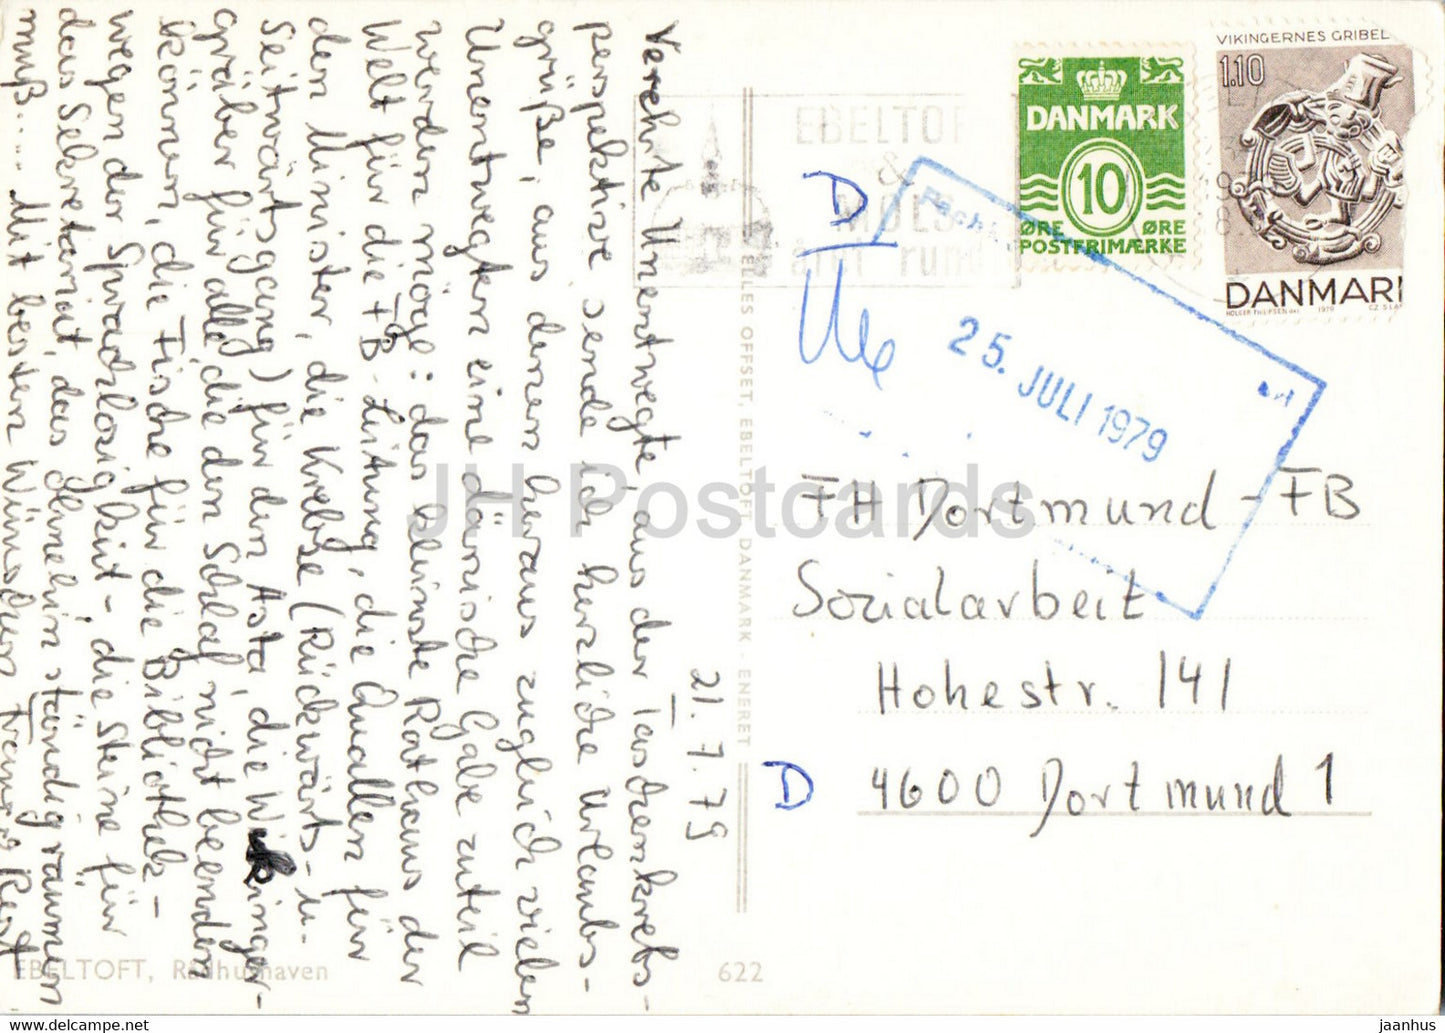 21.7.79
Verehrte Unentwegte, aus der Taschenkrebs-
perspektive sende ich herzliche Urlaubs-
grüße, aus denen heraus zugleich vielen
Unentwegten eine dänische Gabe zuteil
werden möge: das kleinste Rathaus der
Welt für die FB-Leitung, die Quallen für
den Minister, die Krebse (Rückwärts- u.
Seitwärtsgang) für den Asta, die Wikinger-
gräber für alle die den Schlaf nicht beenden
können, die Fische für die Bibliothek-
wegen der Sprachlosigkeit-, die Steine für
das Sekretariat, das ohnehin ständig räumen
muß.... Mit besten Wünschen
EBELTOFT, Rådhushaven
622
ELLES OFFSET, EBELTOFT, DANMARK - ENERET
EBELTOFT
&
MOLS
året rundt
DANMARK
10
ØRE ØRE
POSTFRIMÆRKE
VIKINGERNES GRIBE
1.10
DANMAR
1979
25. JULI 1979
D
D
FH Dortmund - FB
Sozialarbeit
Hohestr. 141
4600 Dortmund 1
JH Postcards
www.delcampe.net
jaanhus